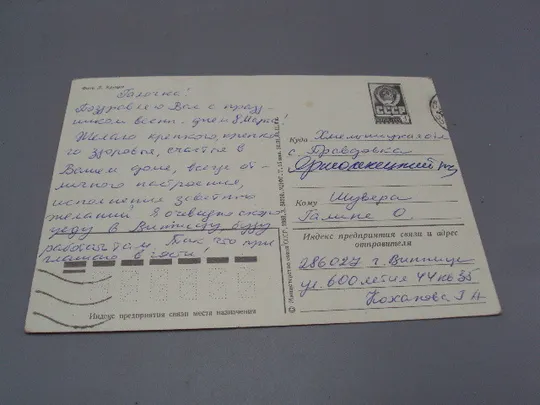 Галочка!
Поздравляю Вас с празд-
ником весны - днем 8 Марта!
Желаю крепкого, крепко-
го здоровья, счастья в
Вашем доме, всегда от-
личного настроения,
исполнения
желаний! Я очевидно скоро
уеду в Винницу буду
работать там. Так что при
глашаю в гости!
Индекс предприятия связи места назначения
СССР
Куда Хмельницкая обл
с. Правдовка
Ярмолинецкий р-н
Кому Шувера
Галине О.
Индекс предприятия связи и адрес
отправителя
286027 г. Винница
ул. 600летия 44 кв 35
Г А
© Министерство связи СССР